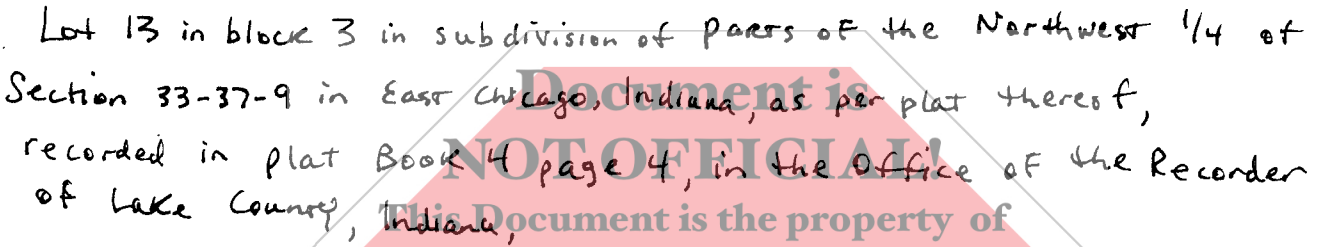 Lot 13 in block 3 in subdivision of parts of the Northwest 1/4 of
Section 33-37-9 in East Chicago, Indiana, as per plat thereof,
recorded in plat Book 4 page 4, in the Office of the Recorder
of Lake County, Indiana,
Document is
NOT OFFICIAL!
This Document is the property of